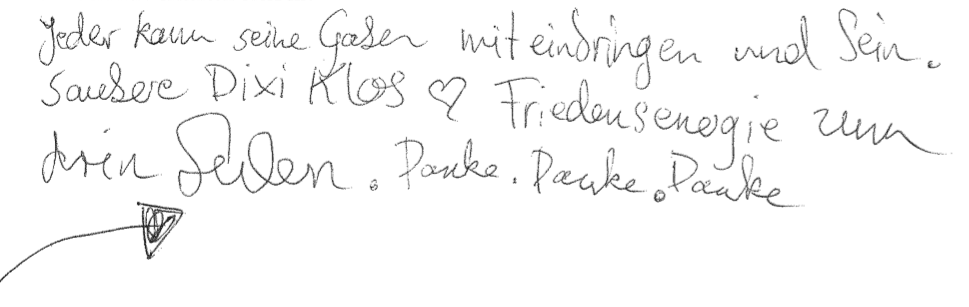 Jeder kann seine Gaben mit eindringen und Sein.
Saubere Dixi Klos ♡ Friedensenergie zum
drin Baden. Danke. Danke. Danke